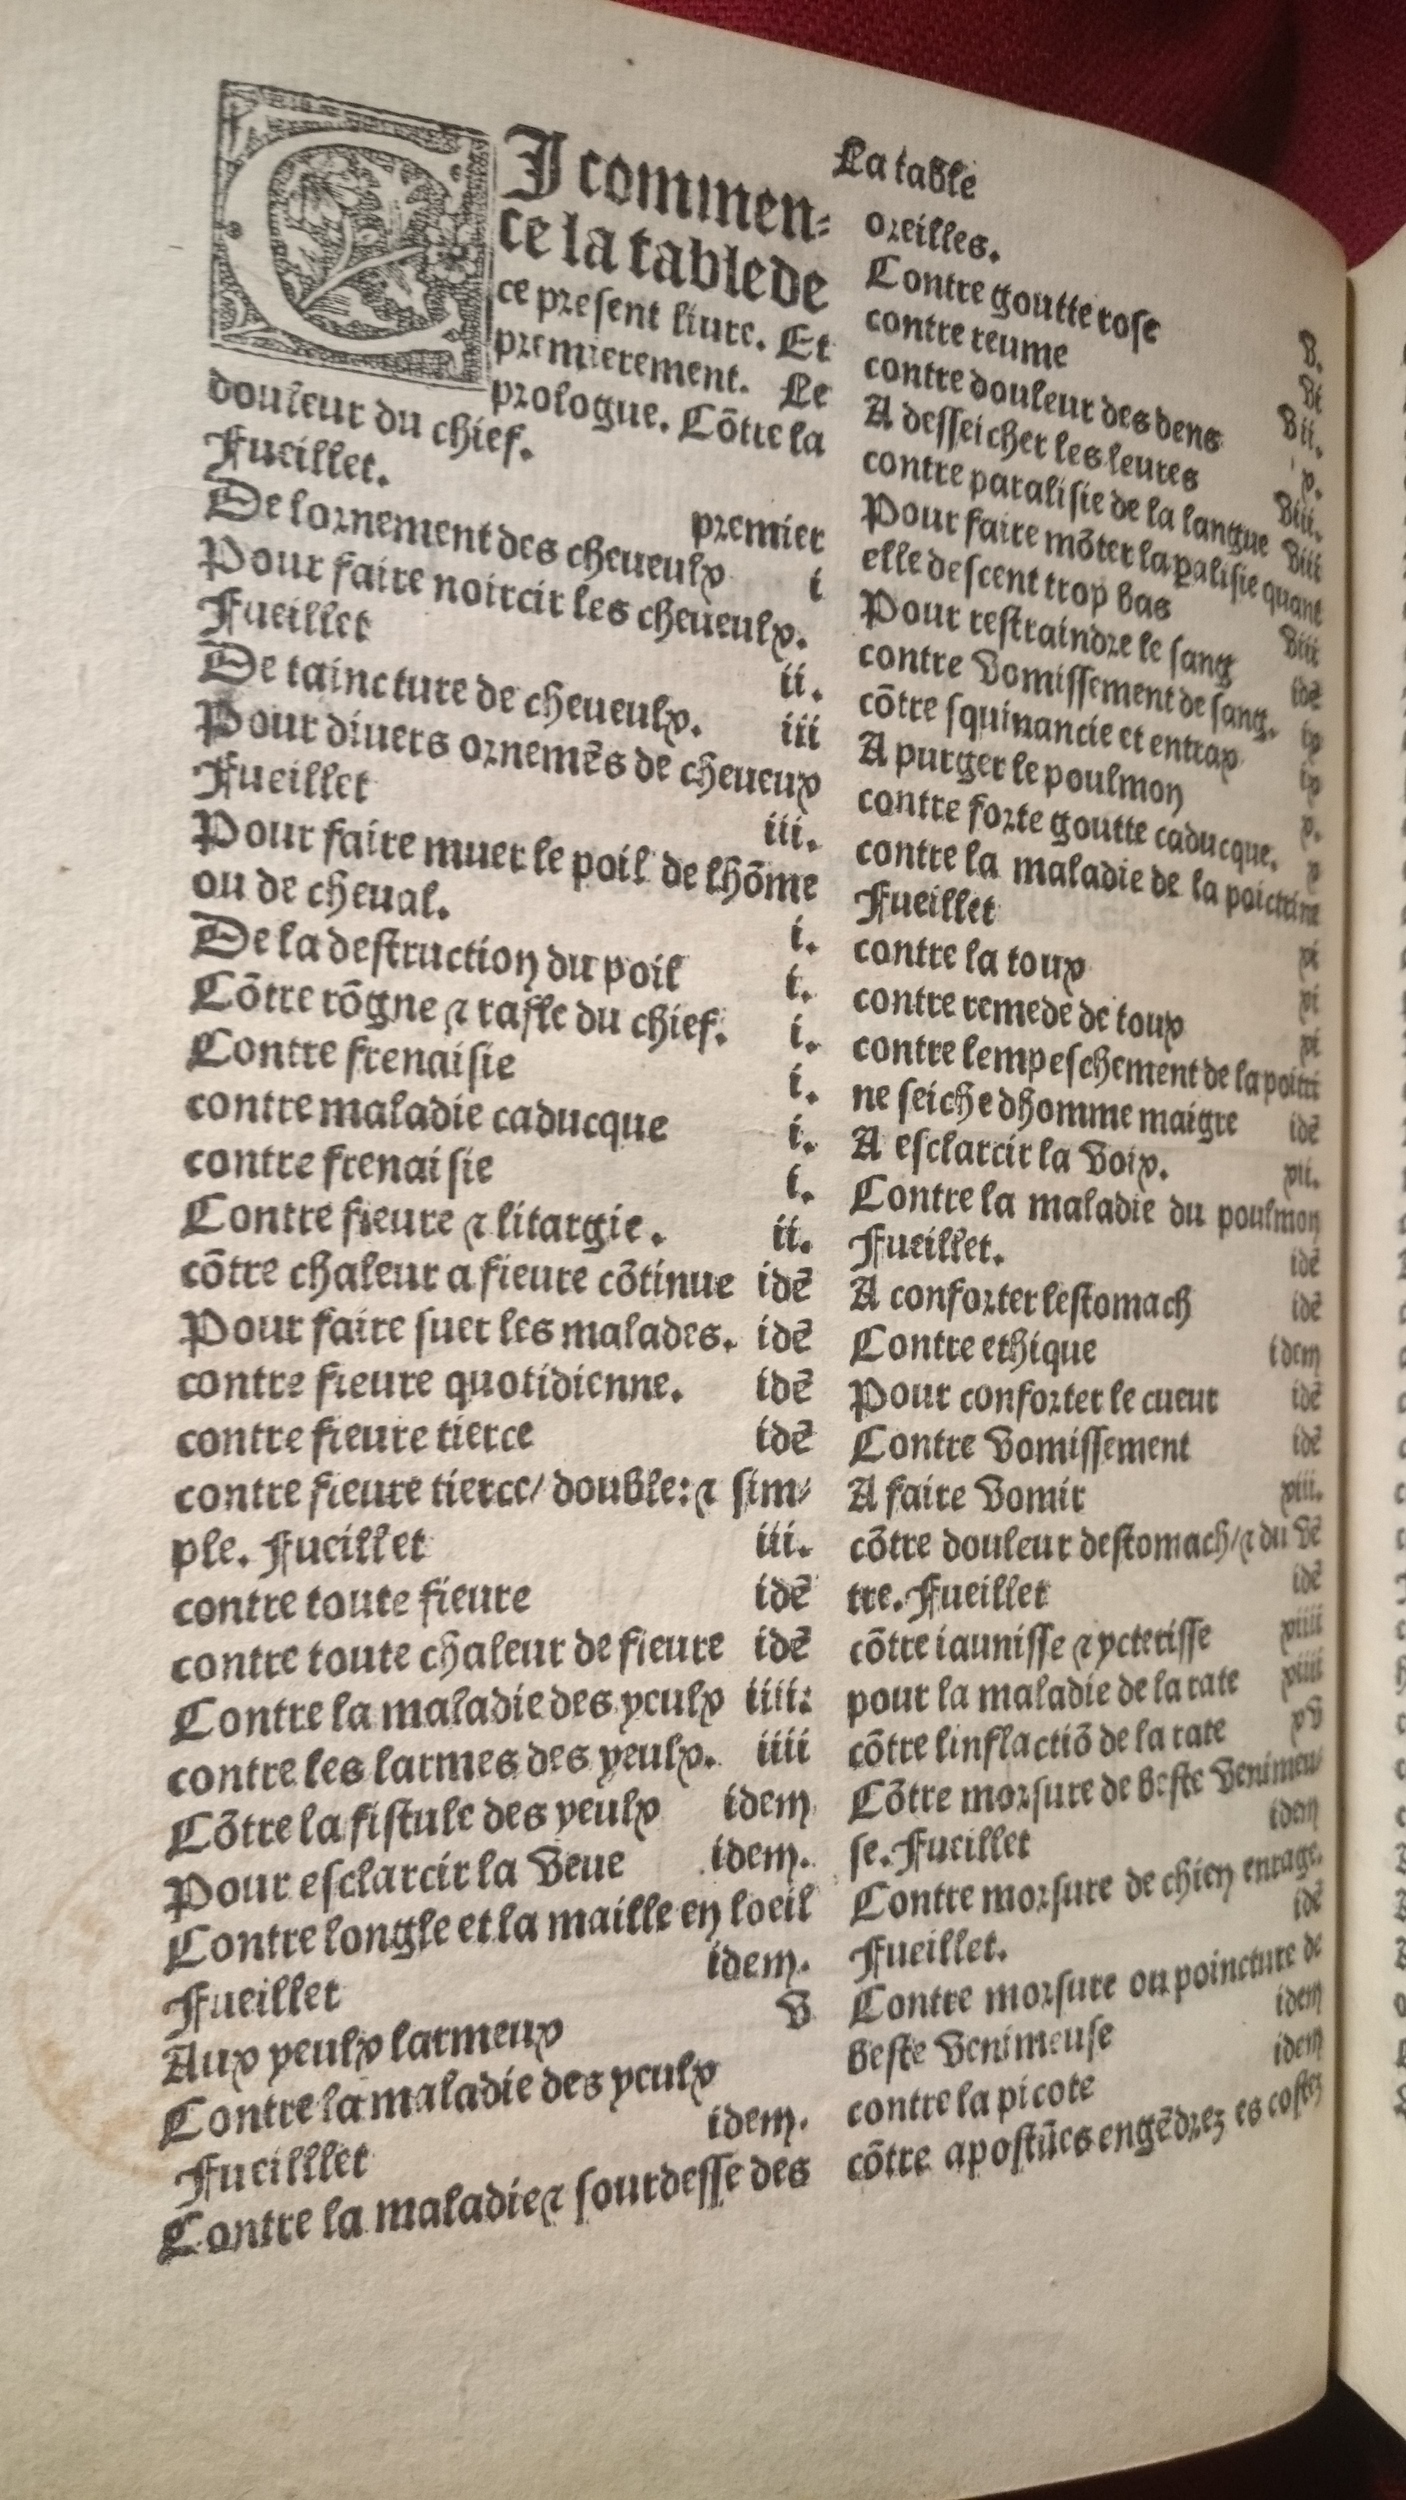 La table
CI commen-
ce la table de
ce present liure. Et
premierement. Le
prologue. Cõtre la
douleur du chief.
Fueillet. premier
De lornement des cheueulx i
Pour faire noircir les cheueulx.
Fueillet ii.
De taincture de cheueulx. iii
Pour diuers ornemẽs de cheueux
Fueillet iii.
Pour faire muer le poil de lhõme
ou de cheual. i.
De la destruction du poil i.
Cõtre rõgne ⁊ rasfle du chief. i.
Contre frenaisie i.
contre maladie caducque i.
contre frenaisie i.
Contre fieure ⁊ litargie. ii.
cõtre chaleur a fieure cõtinue idẽ
Pour faire suer les malades. idẽ
contre fieure quotidienne. idẽ
contre fieure tierce idẽ
contre fieure tierce/ double: ⁊ sim-
ple. Fueillet iii.
contre toute fieure idẽ
contre toute chaleur de fieure idẽ
Contre la maladie des yeulx iiii.
contre les larmes des yeulx. iiii
Cõtre la fistule des yeulx idem
Pour esclarcir la veue idem.
Contre longle et la maille en loeil
Fueillet idem.
Aux yeulx larmeux v
Contre la maladie des yeulx
Fueilllet idem.
Contre la maladie ⁊ sourdesse des
oreilles. v.
Contre goutte rose vi
contre reume vii.
contre douleur des dens v.
A desseicher les leures viii.
contre paralisie de la langue viii
Pour faire mõter la palisie quant
elle descent trop bas viii
Pour restraindre le sang idẽ
contre vomissement de sang. ix
cõtre squinancie et entrax ix
A purger le poulmon x.
contre forte goutte caducque. x
contre la maladie de la poictrine
Fueillet xi
contre la toux xi
contre remede de toux xi
contre lempeschement de la poitri
ne seiche dhomme maigre idẽ
A esclarcir la voix. xii.
Contre la maladie du poulmon
Fueillet. idẽ
A conforter lestomach idẽ
Contre ethique idem
Pour conforter le cueur idẽ
Contre vomissement idẽ
A faire vomir xiii.
cõtre douleur destomach/ ⁊ du vẽ
tre. Fueillet idẽ
cõtre iaunisse ⁊ ycterisse xiiii
pour la maladie de la rate xiiii
cõtre linflactiõ de la rate xv
Cõtre morsure de beste venimeu
se. Fueillet idem
Contre morsure de chien enrage.
Fueillet. idẽ
Contre morsure ou poincture de
beste venimeuse idem
contre la picote idem
cõtre apostũes engẽdrez es costez